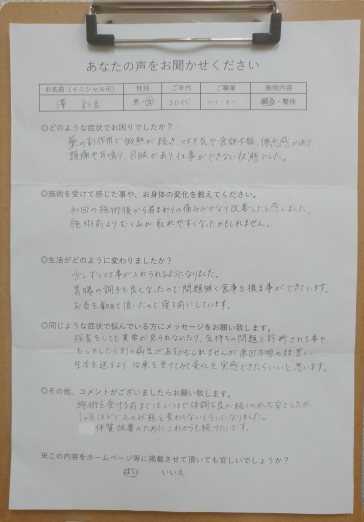 あなたの声をお聞かせください
お名前（イニシャル可） 性別 ご年代 ご職業 施術内容
澤 男・女 20代 フリーター 鍼灸・整体
◎どのような症状でお困りでしたか？
薬の副作用で微熱が続き、吐き気や食欲不振、倦怠感があり、
頭痛や耳鳴り、目眩があり仕事ができない状態でした。
◎施術を受けて感じた事や、お身体の変化を教えてください。
初回の施術後から肩まわりの痛みがかなり改善したと感じました。
施術前よりむくみが取れやすくなったかもしれません。
◎生活がどのように変わりましたか？
少しずつ仕事が入れられるようになりました。
胃腸の調子も良くなったので問題無く食事を摂る事ができています。
お灸を勧めて頂いたので寝る前にしています。
◎同じような症状で悩んでいる方にメッセージをお願い致します。
検査をしても異常が見られなかったり、気持ちの問題と診断される事や
もしかしたら別の病気があるかもしれませんが原因不明のまま苦しい
生活を送るより、治療を受けてみて変化を実感できたらいいと思います。
◎その他、コメントがございましたらお願い致します。
施術を受ける前まではいつまで体調不良が続くのか不安でしたが、
1ヶ月ほどで元の状態と変わらないくらいになりました。
体質改善のためにこれからも続けたいです。
※この内容をホームページ等に掲載させて頂いても宜しいでしょうか？
はい いいえ